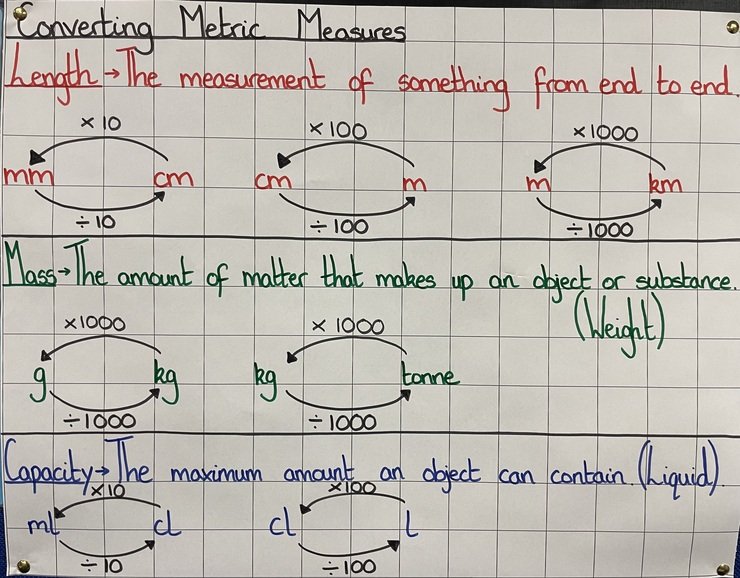 Converting Metric Measures
Length → The measurement of something from end to end.
×10 ×100 ×1000
mm cm cm m m km
÷10 ÷100 ÷1000
Mass → The amount of matter that makes up an object or substance.
(Weight)
×1000 ×1000
g kg kg tonne
÷1000 ÷1000
Capacity → The maximum amount an object can contain. (Liquid).
×10 ×100
ml cl cl l
÷10 ÷100